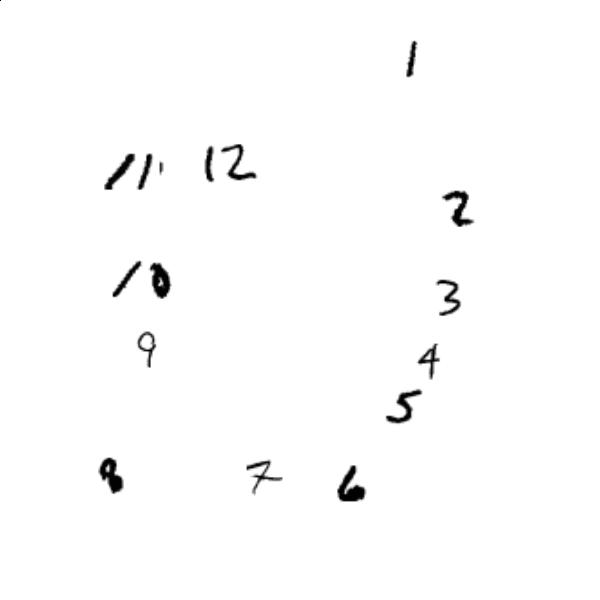 1
11 12
2
10
3
9
4
5
8 7 6